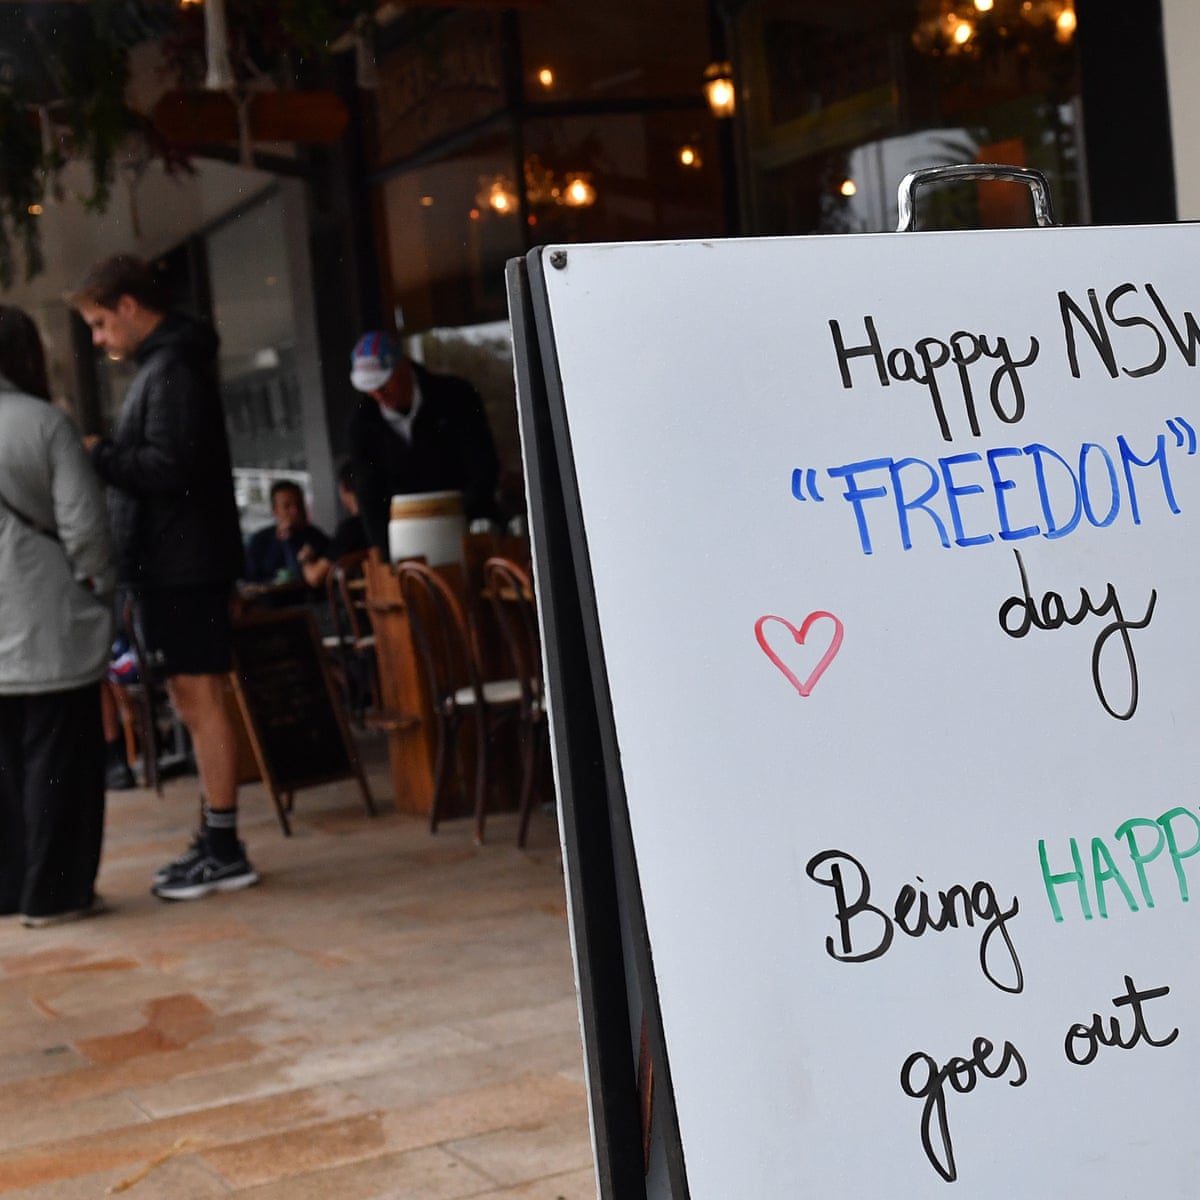 Happy NSW
“FREEDOM”
day
Being HAPPY
goes out